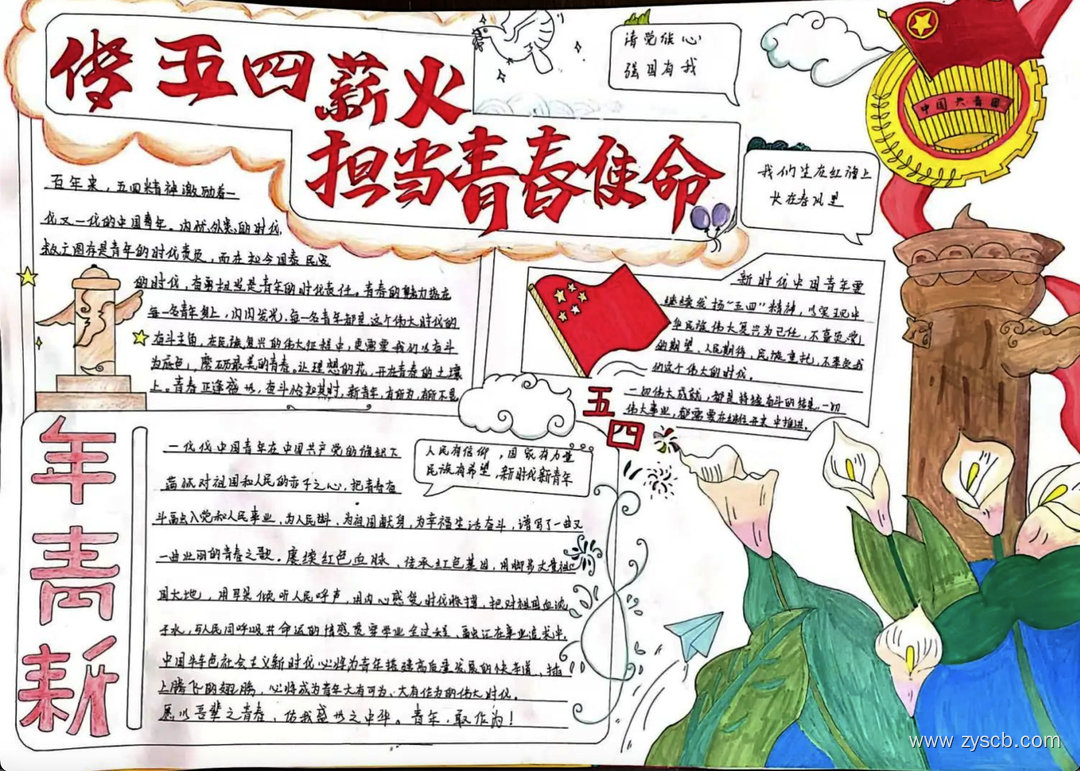 传五四薪火
担当青春使命
请党放心
强国有我
中国共青团
我们生在红旗上
长在春风里
百年来，五四精神激励着一
代又一代的中国青年。内忧外患的时代，
救亡图存是青年的时代责任，而在如今国泰民安
的时代，有勇担当是青年的时代责任。青春的魅力热在
每一名青年身上，闪闪发光，每一名青年都是这个伟大时代的
奋斗主角，在民族复兴的伟大征程中，更需要我们以奋斗
为底色，磨砺最美的青春，让理想的花，开在青春的土壤
上。青春正逢盛世，奋斗恰如其时，新青年，有所为，有所不为
新时代中国青年要
继续发扬"五四"精神，以实现中
华民族伟大复兴为己任，不辜负党
的期望，人民期待，民族重托，不辜负我
们这个伟大的时代。
一切伟大成就，都是持续奋斗的结果，一切
伟大事业，都需要在继往开来中推进。
五四
年青新
人民有信仰，国家有力量
民族有希望，新时代新青年
一代代中国青年在中国共产党的旗帜下
满怀对祖国和人民的赤子之心，把青春奋
斗融入党和人民事业，为人民，为祖国献身，为幸福生活奋斗，谱写了一曲又
一曲壮丽的青春之歌。赓续红色血脉，传承红色基因，用脚步丈量祖
国大地，用耳朵倾听人民呼声，用内心感受时代脉搏，把对祖国血浓
于水，与人民同呼吸共命运的情感贯穿学业全过程、融汇在事业追求中，
中国特色社会主义新时代必将为青年搭建高质量发展的快车道、插
上腾飞的翅膀，必将成为青年大有可为、大有作为的伟大时代。
愿以吾辈之青春，佑我盛世之中华。青年，敢作为！
www.zyscb.com